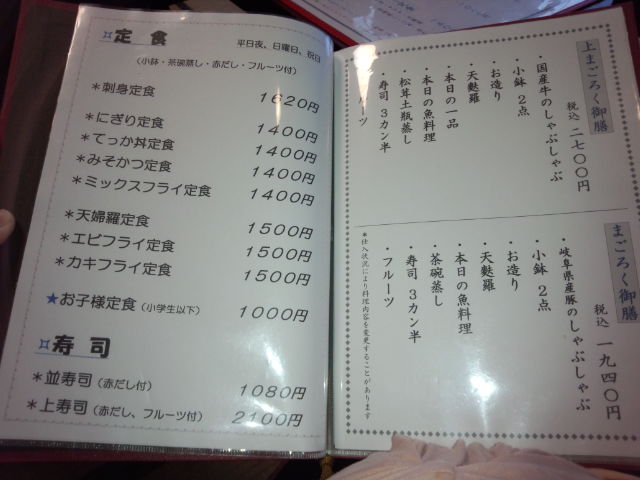 ¤定 食 平日夜、日曜日、祝日
(小鉢・茶碗蒸し・赤だし・フルーツ付)
*刺身定食 1620円
*にぎり定食 1400円
*てっか丼定食 1400円
*みそかつ定食 1400円
*ミックスフライ定食 1400円
*天婦羅定食 1500円
*エビフライ定食 1500円
*カキフライ定食 1500円
★お子様定食 (小学生以下) 1000円
¤寿 司
*並寿司 (赤だし付) 1080円
*上寿司 (赤だし、フルーツ付) 2100円
上まごろく御膳
税込 二七〇〇円
・国産牛のしゃぶしゃぶ
・小鉢 2点
・お造り
・天麩羅
・本日の一品
・本日の魚料理
・松茸土瓶蒸し
・寿司 3カン半
ルーツ
まごろく御膳
税込 一九四〇円
・岐阜県産豚のしゃぶしゃぶ
・小鉢 2点
・お造り
・天麩羅
・本日の魚料理
・茶碗蒸し
・寿司 3カン半
・フルーツ
*仕入状況により料理内容を変更することがあります